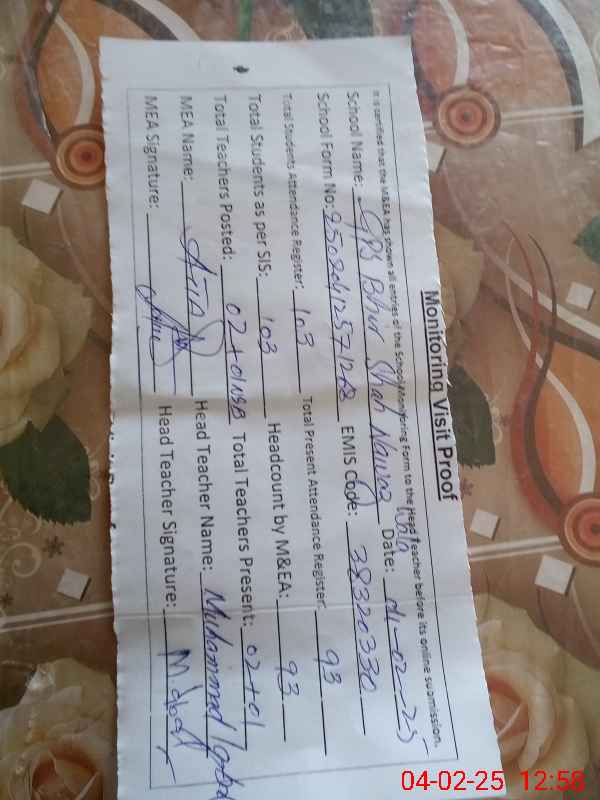 Monitoring Visit Proof
It is certified that the M&EA has shown all entries of the School Monitoring Form to the Head Teacher before its online submission.
School Name: GPS Bhur Shah Nawaz Wala Date: 04-02-25
School Form No: EMIS Code: 38320330
Total Students Attendance Register: 103 Total Present Attendance Register: 93
Total Students as per SIS: 103 Headcount by M&EA: 93
Total Teachers Posted: 02+01NSB Total Teachers Present: 02+01
MEA Name: Head Teacher Name: Muhammad Iqbal
MEA Signature: Head Teacher Signature: M. Iqbal
04-02-25 12:58